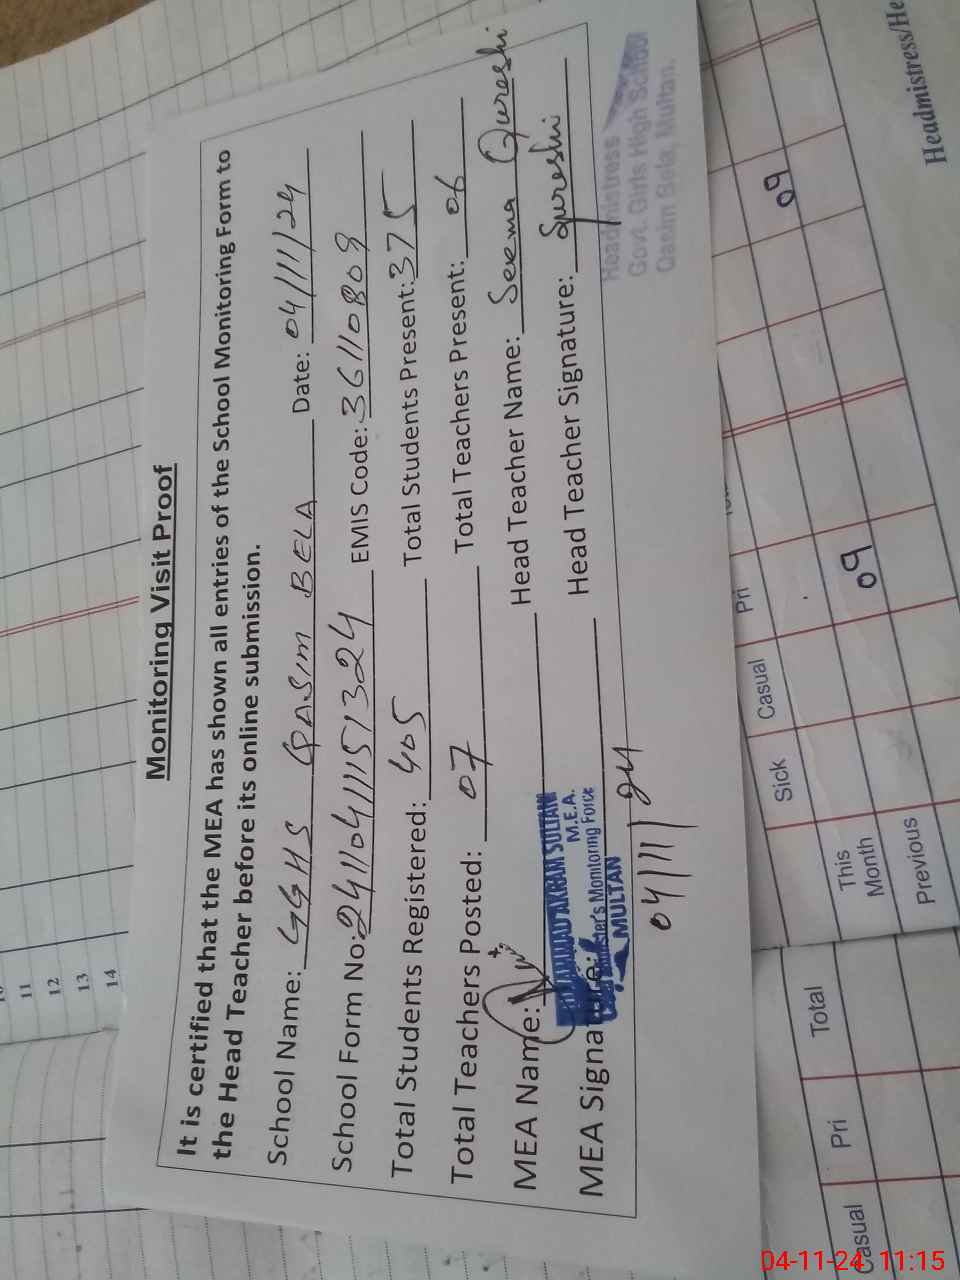 Monitoring Visit Proof
It is certified that the MEA has shown all entries of the School Monitoring Form to
the Head Teacher before its online submission.
School Name: GGHS QASIM BELA Date: 04/11/24
School Form No: 241104111151324 EMIS Code: 36110809
Total Students Registered: 405 Total Students Present: 375
Total Teachers Posted: 07 Total Teachers Present: 06
MEA Name: Head Teacher Name: Seema Qureshi
MEA Signature: Head Teacher Signature: Qureshi
AKRAM SULTANI
M.E.A.
Monitoring Force
MULTAN
04/11/24
Headmistress
Govt. Girls High School
Qasim Bela, Multan.
11
12
13
14
Sick Casual Pri
This
Month
09
09
Previous
Casual Pri Total
Headmistress/He
04-11-24 11:15